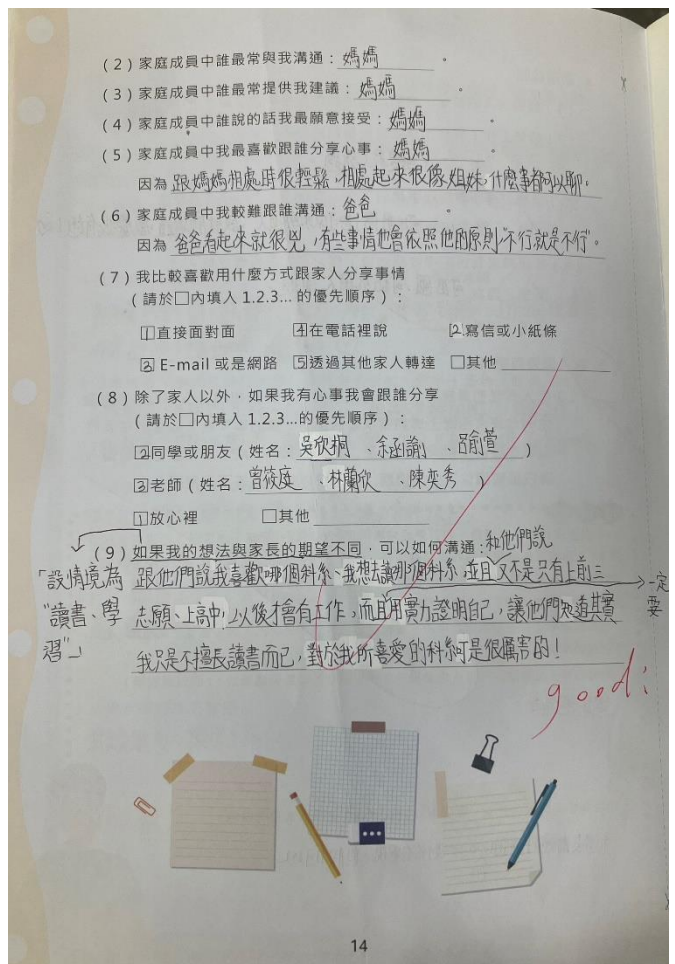 (2)家庭成員中誰最常與我溝通：媽媽。
(3)家庭成員中誰最常提供我建議：媽媽。
(4)家庭成員中誰說的話我最願意接受：媽媽。
(5)家庭成員中我最喜歡跟誰分享心事：媽媽。
因為 跟媽媽相處時很輕鬆,相處起來很像姐妹,什麼事都可以聊。
(6)家庭成員中我較難跟誰溝通：爸爸。
因為 爸爸看起來就很兇,有些事情也會依照他的原則"不行就是不行"。
(7)我比較喜歡用什麼方式跟家人分享事情
(請於□內填入1.2.3...的優先順序)：
1直接面對面 4在電話裡說 2寫信或小紙條
3 E-mail 或是網路 5透過其他家人轉達 □其他
(8)除了家人以外,如果我有心事我會跟誰分享
(請於□內填入1.2.3...的優先順序)：
2同學或朋友(姓名：吳欣桐、余函諭、呂俞萱)
3老師(姓名：曾筱庭、林蘭欣、陳奕秀)
1放心裡 □其他
(9)如果我的想法與家長的期望不同,可以如何溝通：和他們說
「設情境為"讀書、學習"」
跟他們說我喜歡哪個科系、我想去讀那個科系,並且又不是只有上前三
志願、上高中,以後才會有工作,而且用實力證明自己,讓他們知道其實
一定要
我只是不擅長讀書而已,對於我所喜愛的科系可是很厲害的!
good!
14